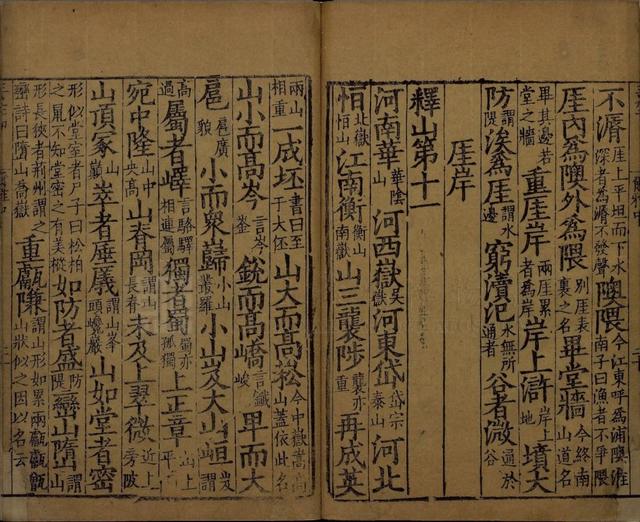 不漘厓上平坦而下水深者為漘不發聲隩隈今江東呼為浦隩淮南子曰漁者不爭隈
厓內為隩外為隈別厓表裏之名畢堂牆今終南山道名
畢其邊若堂之牆重厓岸兩厓累者為岸岸上滸岸上地墳大
防謂隄涘為厓謂水邊窮瀆汜水無所通者谷者溦通於谷
厓岸
釋山第十一
河南華華陰河西嶽吳嶽河東岱岱宗泰山河北
恒北嶽恒山江南衡衡山南嶽山三襲陟襲亦重再成英
兩山相重一成坯書曰至于大伾山大而高崧今中嶽嵩高山蓋依此名
山小而高岑言岑崟銳而高嶠言鑯峻卑而大
扈扈廣貌小而眾巋小山叢羅小山岌大山峘岌謂
高過屬者嶧言駱驛相連屬獨者蜀蜀亦孤獨上正章山上平
宛中隆山中央高山脊岡謂山長脊未及上翠微近上旁陂
山頂冢山巔崒者厜㕒謂山峯頭巉巖山如堂者密
形似堂室者尸子曰松柏之鼠不知堂密之有美樅如防者盛防隄巒山隋謂山
形長狹者荊州謂之巒詩曰墮山喬嶽重甗隒謂山形如累兩甗甗甑山狀似之因以名云